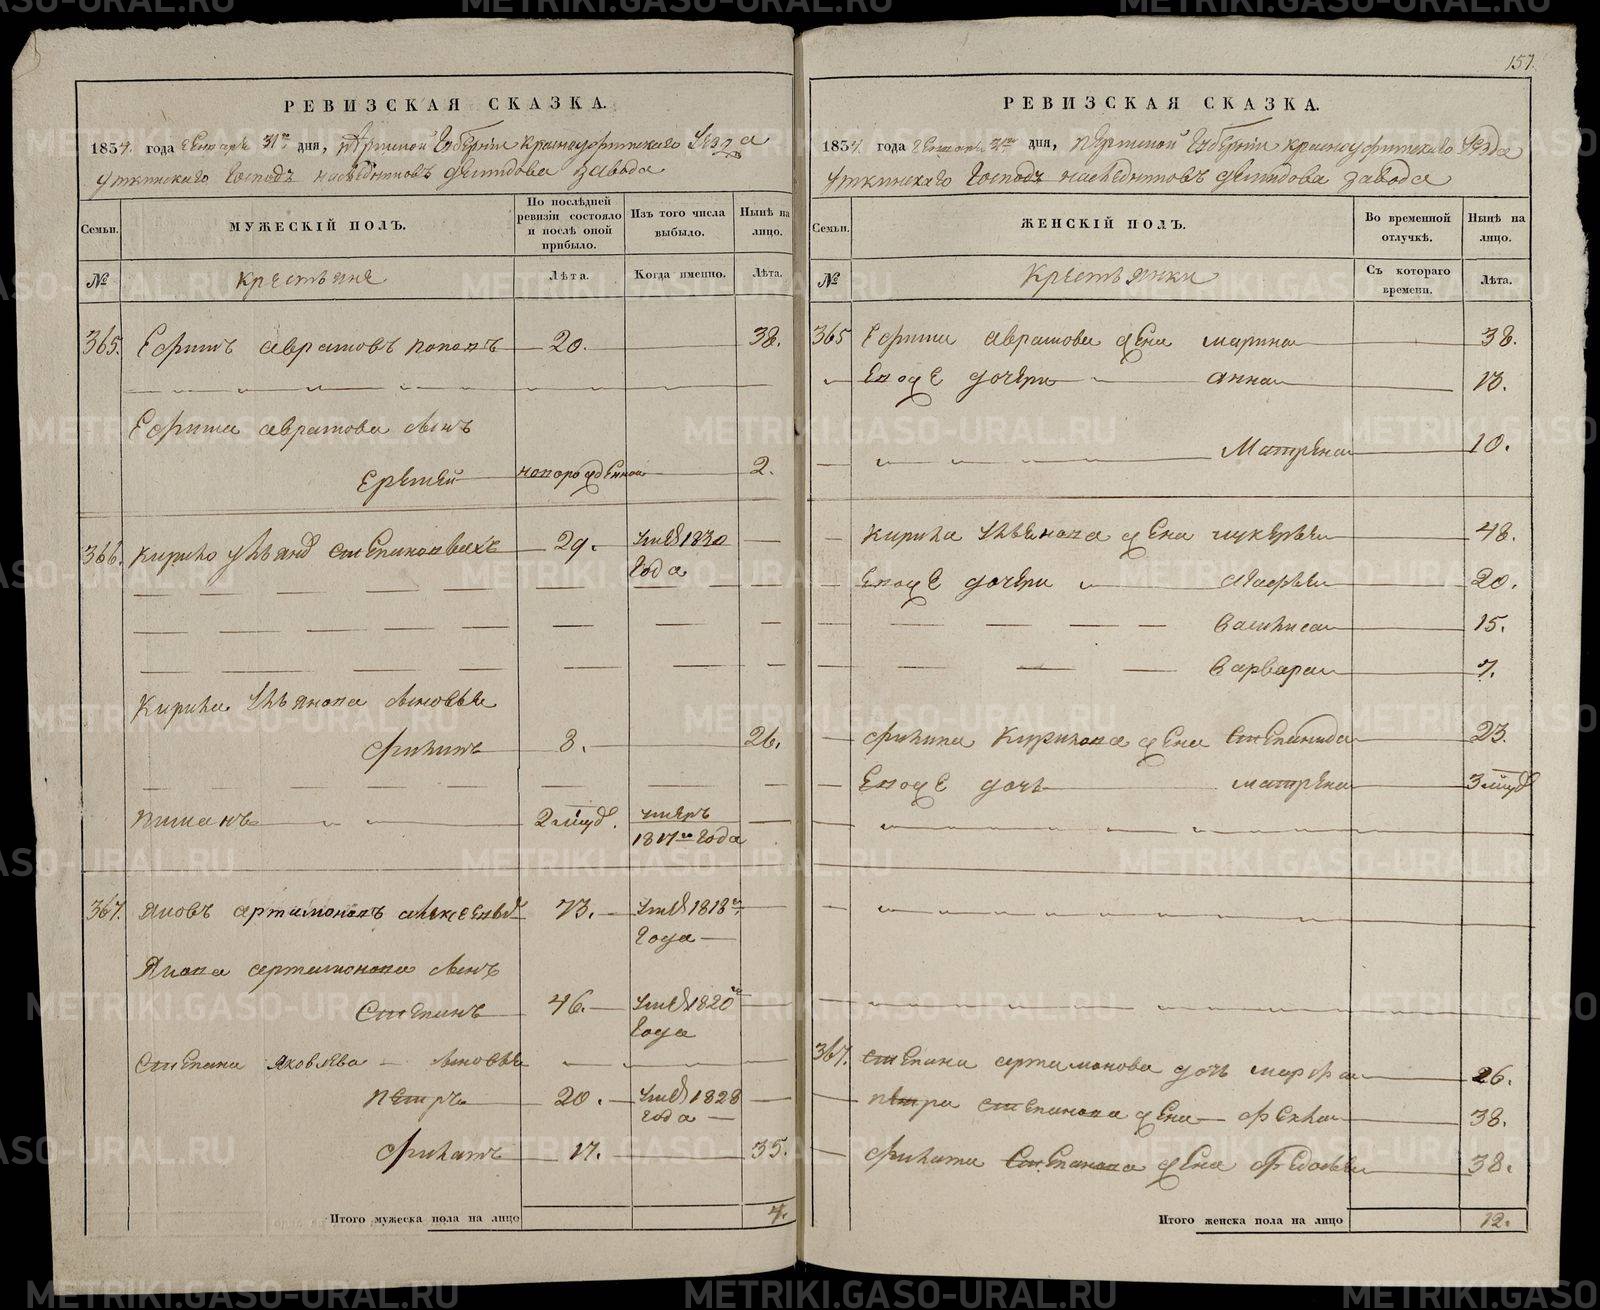 157.
РЕВИЗСКАЯ СКАЗКА.
1834. года Генваря 31го дня, Пермской Губернии Красноуфимского Уезда
Уткинского Господъ наследниковъ Демидова завода
Семьи.
МУЖЕСКІЙ ПОЛЪ.
По послѣдней ревизіи состояло и послѣ оной прибыло.
Изъ того числа выбыло.
Нынѣ на лицо.
№
Крестьяне
Лѣта.
Когда именно.
Лѣта.
365. Ефимъ Аврамовъ Поповъ 20. 38.
Ефима Аврамова сынъ
Еремей новорожденной 2.
366. Кирило Ульянъ 29. умеръ 1830
года
Кирила Ульянова сыновья
Филипъ 8. 26.
2 умеръ
1817го года
367. Яковъ Артамоновъ 73. умеръ 1818го
года
Якова Артамонова сынъ
Степанъ 46. умеръ 1820го
года
Степана Яковлева сыновья
Петръ 20. умеръ 1828
года
Филатъ 17. 35.
Итого мужеска пола на лицо 4.
РЕВИЗСКАЯ СКАЗКА.
1834. года Генваря 31го дня, Пермской Губернии Красноуфимского Уезда
Уткинского Господъ наследниковъ Демидова завода
Семьи.
ЖЕНСКІЙ ПОЛЪ.
Во временной отлучкѣ.
Нынѣ на лицо.
№
Крестьянки
Съ котораго времени.
Лѣта.
365 Ефима Аврамова жена Марина 38.
Евоже дочери Анна 13.
Матрена 10.
Кирила Ульянова жена Гликерья 48.
Евоже дочери Агафья 20.
Василиса 15.
Варвара 7.
Филипа Кирилова жена Степанида 23.
Евоже дочь Матрена 3
367. Степана Артамонова дочь Марфа 26.
Петра Степанова жена Фекла 38.
Филата Степанова жена Федосья 38.
Итого женска пола на лицо 12.
METRIKI.GASO-URAL.RU